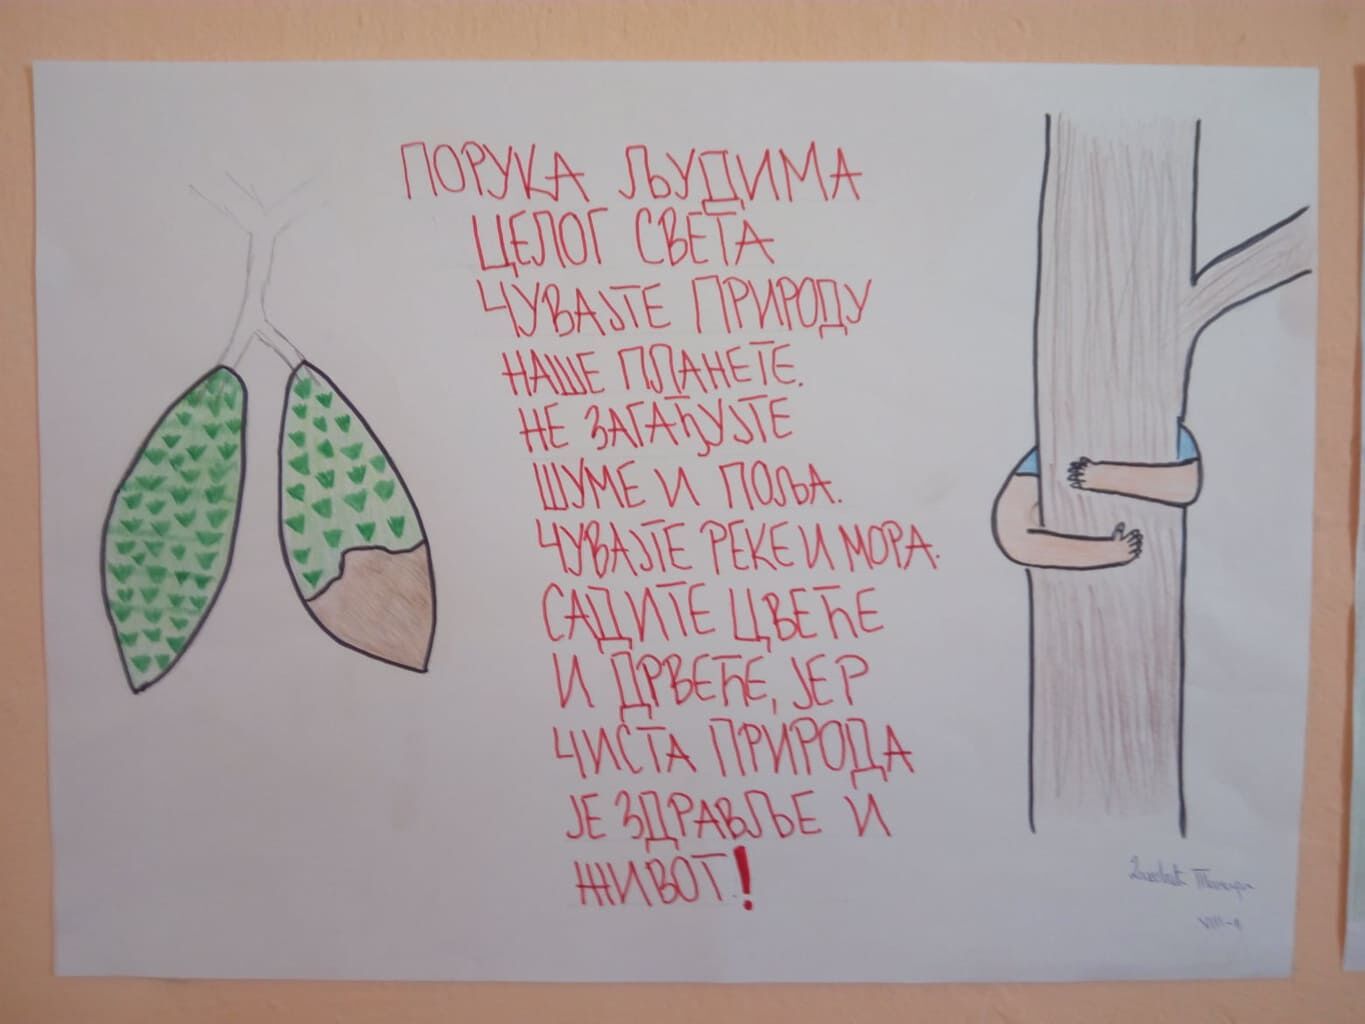 ПОРУКА ЉУДИМА
ЦЕЛОГ СВЕТА
ЧУВАЈТЕ ПРИРОДУ
НАШЕ ПЛАНЕТЕ.
НЕ ЗАГАЂУЈТЕ
ШУМЕ И ПОЉА.
ЧУВАЈТЕ РЕКЕ И МОРА.
САДИТЕ ЦВЕЋЕ
И ДРВЕЋЕ, ЈЕР
ЧИСТА ПРИРОДА
ЈЕ ЗДРАВЉЕ И
ЖИВОТ!